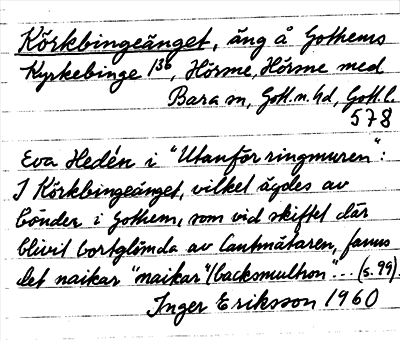 Körkbingeänget, äng å Gothems
Kyrkebinge 1³⁶, Hörsne, Hörsne med
Bara sn, Gotl. n. hd, Gotl. l.
578
Eva Hedén i "Utanför ringmuren":
I Körkbingeänget, vilket ägdes av
bönder i Gothem, som vid skiftet där
blivit bortglömda av lantmätaren, fanns
det naikar "naikar"/backsmultron"... (s. 99).
Inger Eriksson 1960